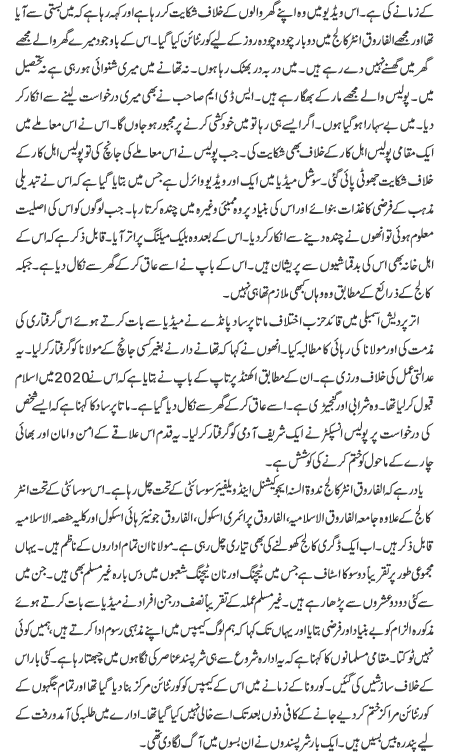 کے زمانے کی ہے۔ اس ویڈیو میں وہ اپنے گھر والوں کے خلاف شکایت کر رہا ہے اور کہہ رہا ہے کہ میں بستی سے آیا
تھا اور مجھے الفاروق انٹر کالج میں دوبار چودہ چودہ روز کے لیے کورنٹائن کیا گیا۔ اس کے باوجود میرے گھر والے مجھے
گھر میں گھسنے نہیں دے رہے ہیں۔ میں در بہ در بھٹک رہا ہوں۔ نہ تھانے میں میری شنوائی ہو رہی ہے نہ تحصیل
میں۔ پولیس والے مجھے مار کے بھگا رہے ہیں۔ ایس ڈی ایم صاحب نے بھی میری درخواست لینے سے انکار کر
دیا۔ میں بے سہارا ہو گیا ہوں۔ اگر ایسے ہی رہا تو میں خودکشی کرنے پر مجبور ہو جاؤں گا۔ اس نے اس معاملے میں
ایک مقامی پولیس اہل کار کے خلاف بھی شکایت کی۔ جب پولیس نے اس معاملے کی جانچ کی تو پولیس اہل کار کے
خلاف شکایت جھوٹی پائی گئی۔ سوشل میڈیا میں ایک اور ویڈیو وائرل ہے جس میں بتایا گیا ہے کہ اس نے تبدیلی
مذہب کے فرضی کاغذات بنوائے اور اس کی بنیاد پر وہ ممبئی وغیرہ میں چندہ کرتا رہا۔ جب لوگوں کو اس کی اصلیت
معلوم ہوئی تو انھوں نے چندہ دینے سے انکار کر دیا۔ اس کے بعد وہ بلیک میلنگ پر اتر آیا۔ قابل ذکر ہے کہ اس کے
اہل خانہ بھی اس کی بدقماشیوں سے پریشان ہیں۔ اس کے باپ نے اسے عاق کر کے گھر سے نکال دیا ہے۔ جبکہ
کالج کے ذرائع کے مطابق وہ وہاں کبھی ملازم تھا ہی نہیں۔
اتر پردیش اسمبلی میں قائد حزب اختلاف ماتا پرساد پانڈے نے میڈیا سے بات کرتے ہوئے اس گرفتاری کی
مذمت کی اور مولانا کی رہائی کا مطالبہ کیا۔ انھوں نے کہا کہ تھانے دار نے بغیر کسی جانچ کے مولانا کو گرفتار کر لیا۔ یہ
عدالتی عمل کی خلاف ورزی ہے۔ ان کے مطابق اکھنڈ پرتاپ کے باپ نے بتایا ہے کہ اس نے 2020 میں اسلام
قبول کر لیا تھا۔ وہ شرابی اور گنجیڑی ہے۔ اسے عاق کر کے گھر سے نکال دیا گیا ہے۔ ماتا پرساد کا کہنا ہے کہ ایسے شخص
کی درخواست پر پولیس انسپکٹر نے ایک شریف آدمی کو گرفتار کر لیا۔ یہ قدم اس علاقے کے امن و امان اور بھائی
چارے کے ماحول کو ختم کرنے کی کوشش ہے۔
یاد رہے کہ الفاروق انٹر کالج ندوۃ السنہ ایجوکیشنل اینڈ ویلفیئر سوسائٹی کے تحت چل رہا ہے۔ اس سوسائٹی کے تحت انٹر
کالج کے علاوہ جامعہ الفاروق الاسلامیہ، الفاروق پرائمری اسکول، الفاروق جونیئر ہائی اسکول اور کلیہ حفصہ الاسلامیہ
قابل ذکر ہیں۔ اب ایک ڈگری کالج کھولنے کی بھی تیاری چل رہی ہے۔ مولانا ان تمام اداروں کے ناظم ہیں۔ یہاں
مجموعی طور پر تقریباً دو سو کا اسٹاف ہے جس میں ٹیچنگ اور نان ٹیچنگ شعبوں میں دس بارہ غیر مسلم بھی ہیں۔ جن میں
سے کئی دو دو عشروں سے پڑھا رہے ہیں۔ غیر مسلم عملہ کے تقریباً نصف درجن افراد نے میڈیا سے بات کرتے ہوئے
مذکورہ الزام کو بے بنیاد اور فرضی بتایا اور یہاں تک کہا کہ ہم لوگ کیمپس میں اپنے مذہبی رسوم ادا کرتے ہیں، ہمیں کوئی
نہیں ٹوکتا۔ مقامی مسلمانوں کا کہنا ہے کہ یہ ادارہ شروع سے ہی شرپسند عناصر کی نگاہوں میں چبھتا رہا ہے۔ کئی بار اس
کے خلاف سازشیں کی گئیں۔ کورونا کے زمانے میں اس کے کیمپس کو کورنٹائن مراکز بنا دیا گیا تھا اور تمام جگہوں کے
کورنٹائن مراکز ختم کر دیے جانے کے کافی دنوں بعد تک اسے خالی نہیں کیا گیا تھا۔ ادارے میں طلبہ کی آمد و رفت کے
لیے پندرہ بیس بسیں ہیں۔ ایک بار شرپسندوں نے ان بسوں میں آگ لگا دی تھی۔